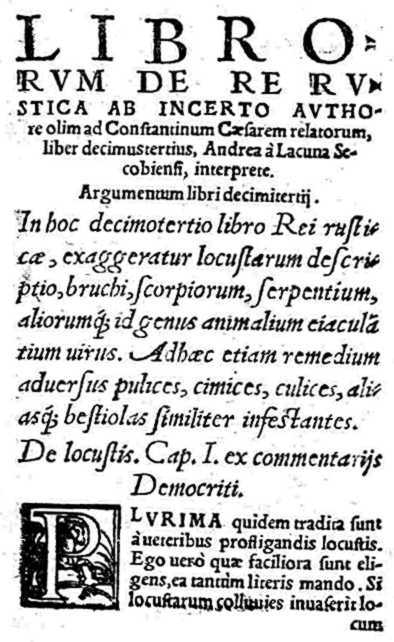 LIBRO-
RVM DE RE RV-
STICA AB INCERTO AVTHO-
re olim ad Constantinum Cæsarem relatorum,
liber decimustertius, Andrea à Lacuna Se-
cobiensi, interprete.
Argumentum libri decimitertij.
In hoc decimotertio libro Rei rusti-
cæ, exaggeratur locustarum descri-
ptio, bruchi, scorpiorum, serpentium,
aliorumq́; id genus animalium eiaculã
tium uirus. Adhæc etiam remedium
aduersus pulices, cimices, culices, ali-
asq́; bestiolas similiter infestantes.
De locustis. Cap. I. ex commentarijs
Democriti.
PLVRIMA quidem tradita sunt
à ueteribus profligandis locustis.
Ego uerò quæ faciliora sunt eli-
gens, ea tantùm literis mando. Si
locustarum colluuies inuaserit lo-
cum